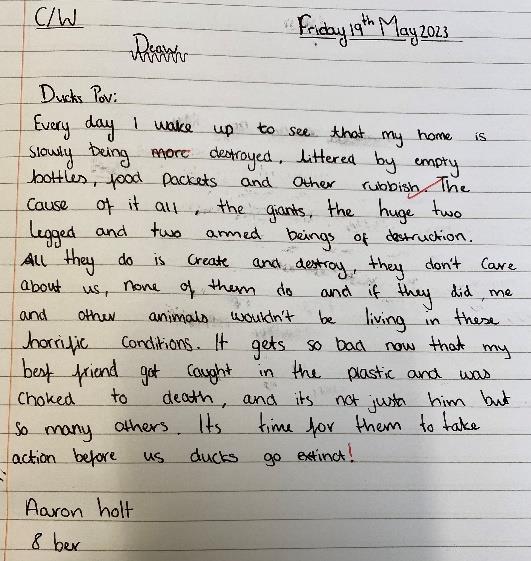 C/W
Friday 19th May 2023
Dear
Ducks Pov:
Every day I wake up to see that my home is
slowly being more destroyed, littered by empty
bottles, food packets and other rubbish. The
cause of it all, the giants, the huge two
legged and two armed beings of destruction.
All they do is create and destroy, they don't care
about us, none of them do and if they did, me
and other animals wouldn't be living in these
horrific conditions. It gets so bad now that my
best friend got caught in the plastic and was
choked to death, and its not justa him but
so many others. Its time for them to take
action before us ducks go extinct!
Aaron holt
8 ber